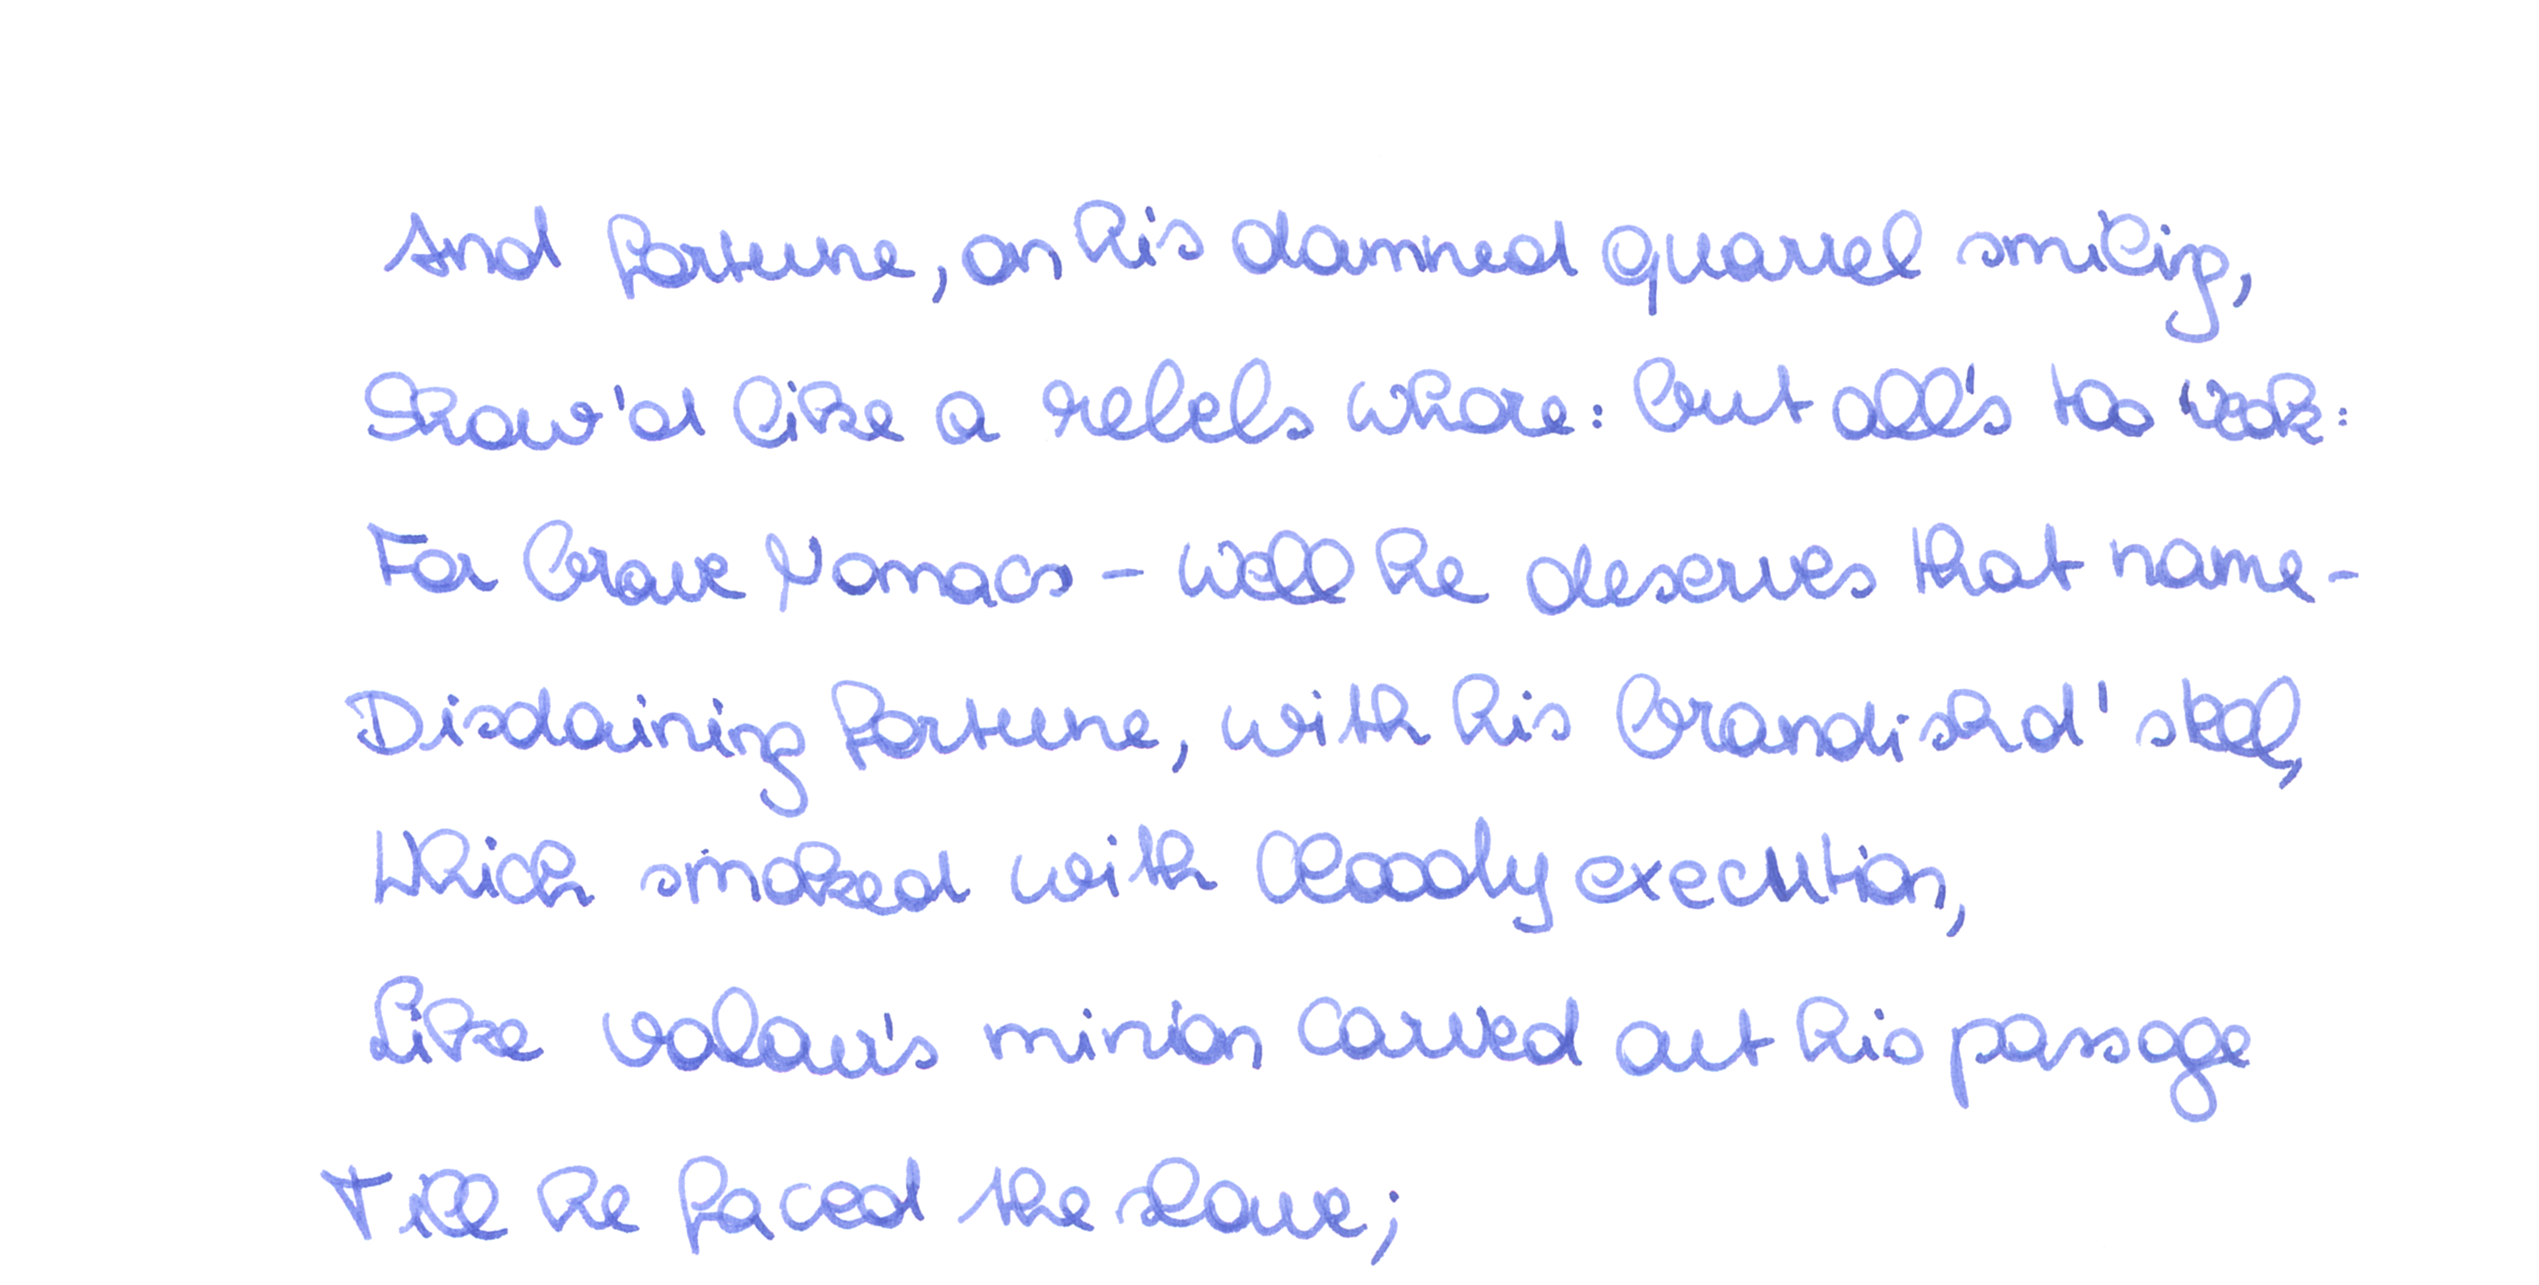 And fortune, on his damned quarrel smiling,
Show'd like a rebels whore: but all's too weak:
For brave Nomacs - well he deserves that name-
Disdaining fortune, with his brandishd' steel,
Which smoked with bloody execution,
Like valour's minion carved out his passage
Till he faced the slave;